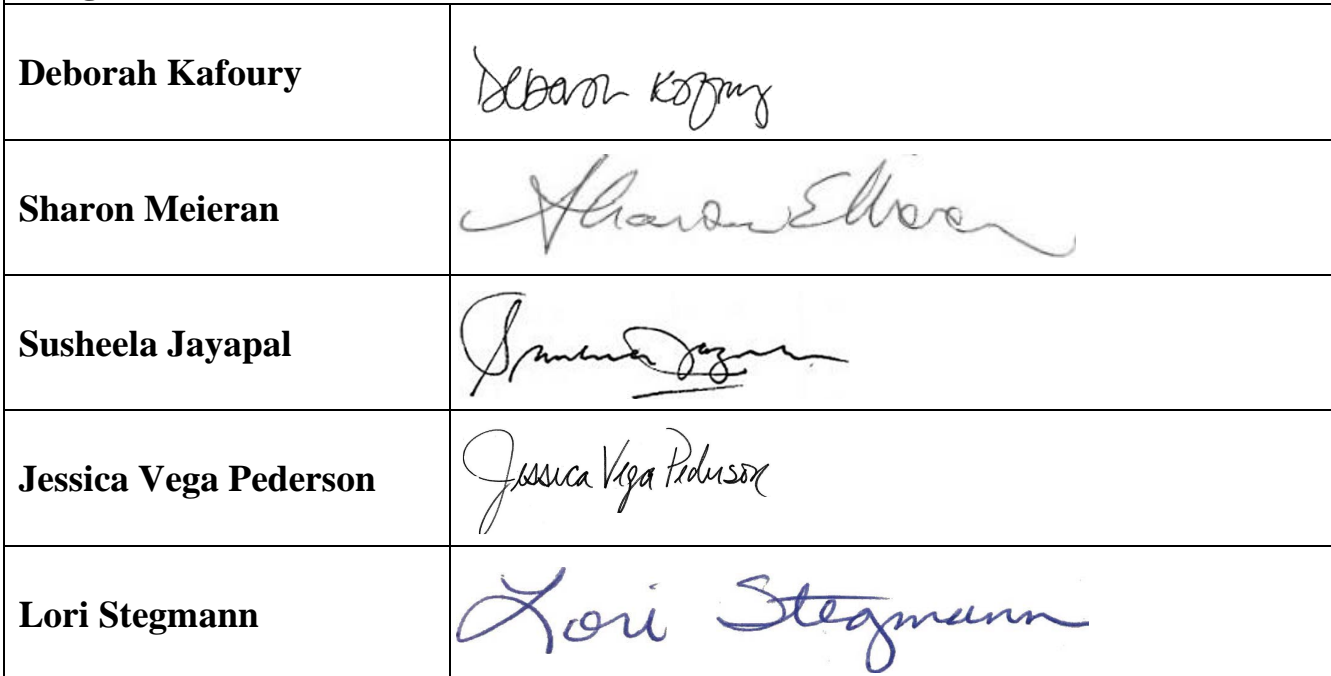 Deborah Kafoury
Deborah Kafoury
Sharon Meieran
Sharon E Meieran
Susheela Jayapal
Susheela Jayapal
Jessica Vega Pederson
Jessica Vega Pederson
Lori Stegmann
Lori Stegmann